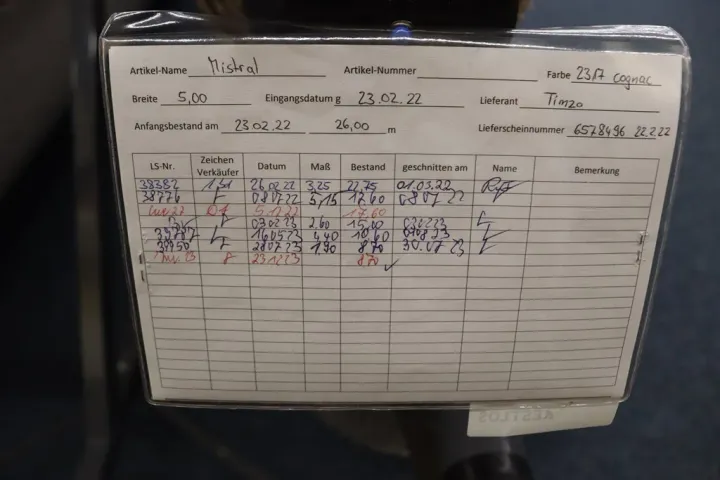 Artikel-Name Mistral Artikel-Nummer Farbe 2317 cognac
Breite 5,00 Eingangsdatum g 23.02.22 Lieferant Timzo
Anfangsbestand am 23.02.22 26,00 m Lieferscheinnummer 6578496 22.2.22
LS-Nr. Zeichen Verkäufer Datum Maß Bestand geschnitten am Name Bemerkung
38382 26.02.22 3,25 22,75 01.03.22
38776 08.07.22 5,15 17,60 08.07.22
17.60
03.02.23 2.60 15,00
16.05.23 4,40 10,60
28.07.23 1,90 8,70 30.07.23
Inv. 23 8 8,70